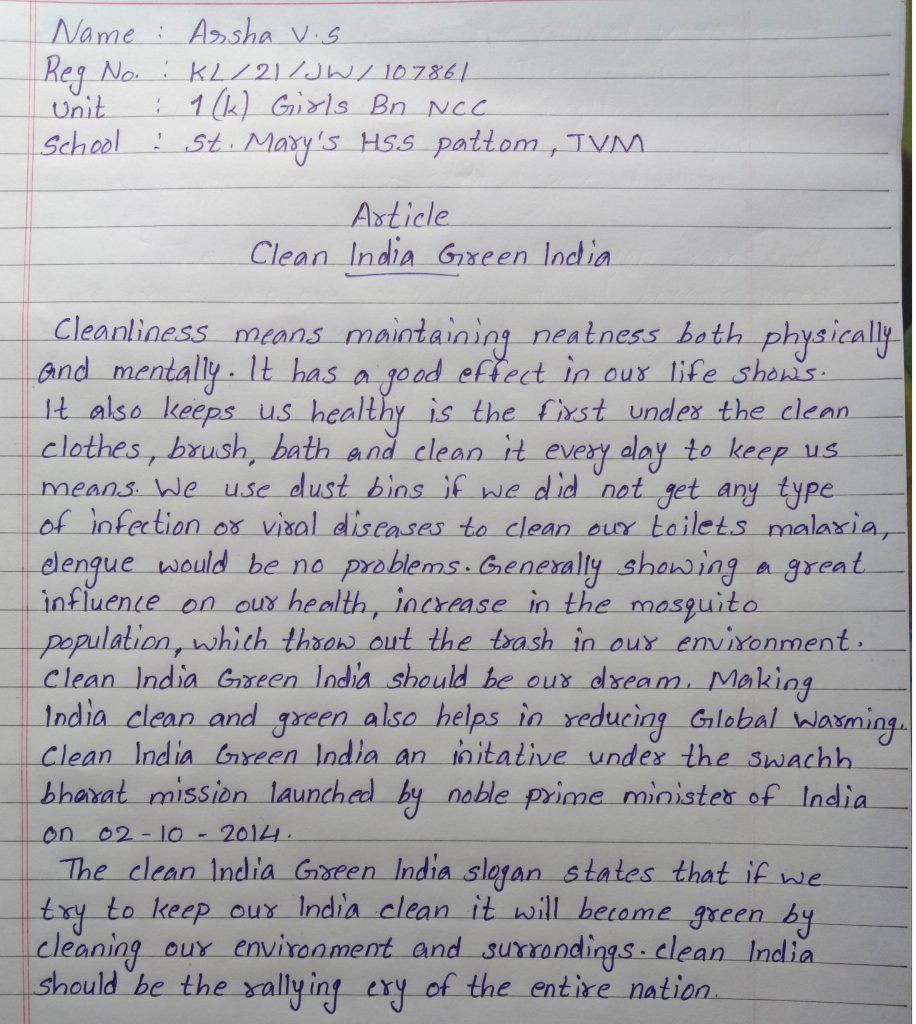 Name : Arsha V.S
Reg No. : KL/21/JW/107861
Unit : 1(k) Girls Bn NCC
School : St. Mary's HSS pattom, TVM
Article
Clean India Green India
Cleanliness means maintaining neatness both physically
and mentally. It has a good effect in our life shows.
It also keeps us healthy is the first under the clean
clothes, brush, bath and clean it every day to keep us
means. We use dust bins if we did not get any type
of infection or viral diseases to clean our toilets malaria,
dengue would be no problems. Generally showing a great
influence on our health, increase in the mosquito
population, which throw out the trash in our environment.
Clean India Green India should be our dream. Making
India clean and green also helps in reducing Global Warming.
Clean India Green India an initative under the swachh
bharat mission launched by noble prime minister of India
on 02-10-2014.
The clean India Green India slogan states that if we
try to keep our India clean it will become green by
cleaning our environment and surrondings. clean India
should be the rallying cry of the entire nation.